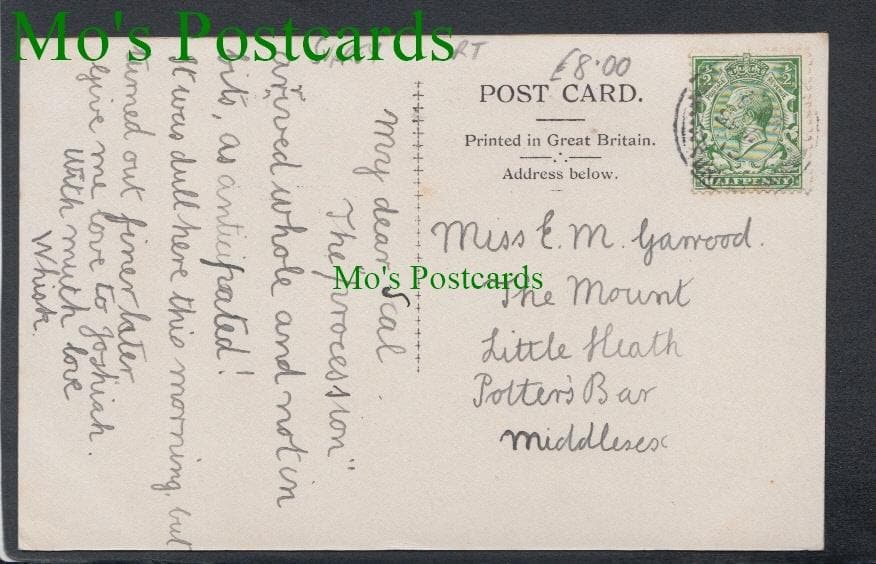 Mo's Postcards
£8.00
POST CARD.
Printed in Great Britain.
Address below.
½ ½
HALFPENNY
Miss E. M. Garwood.
The Mount
Little Heath
Potter's Bar
Middlesex
My dear Scal
"The procession"
arrived whole and not in
bits, as anticipated!
It was dull here this morning, but
turned out finer later
Give me love to Joshiah.
With much love
Whisk.
Mo's Postcards